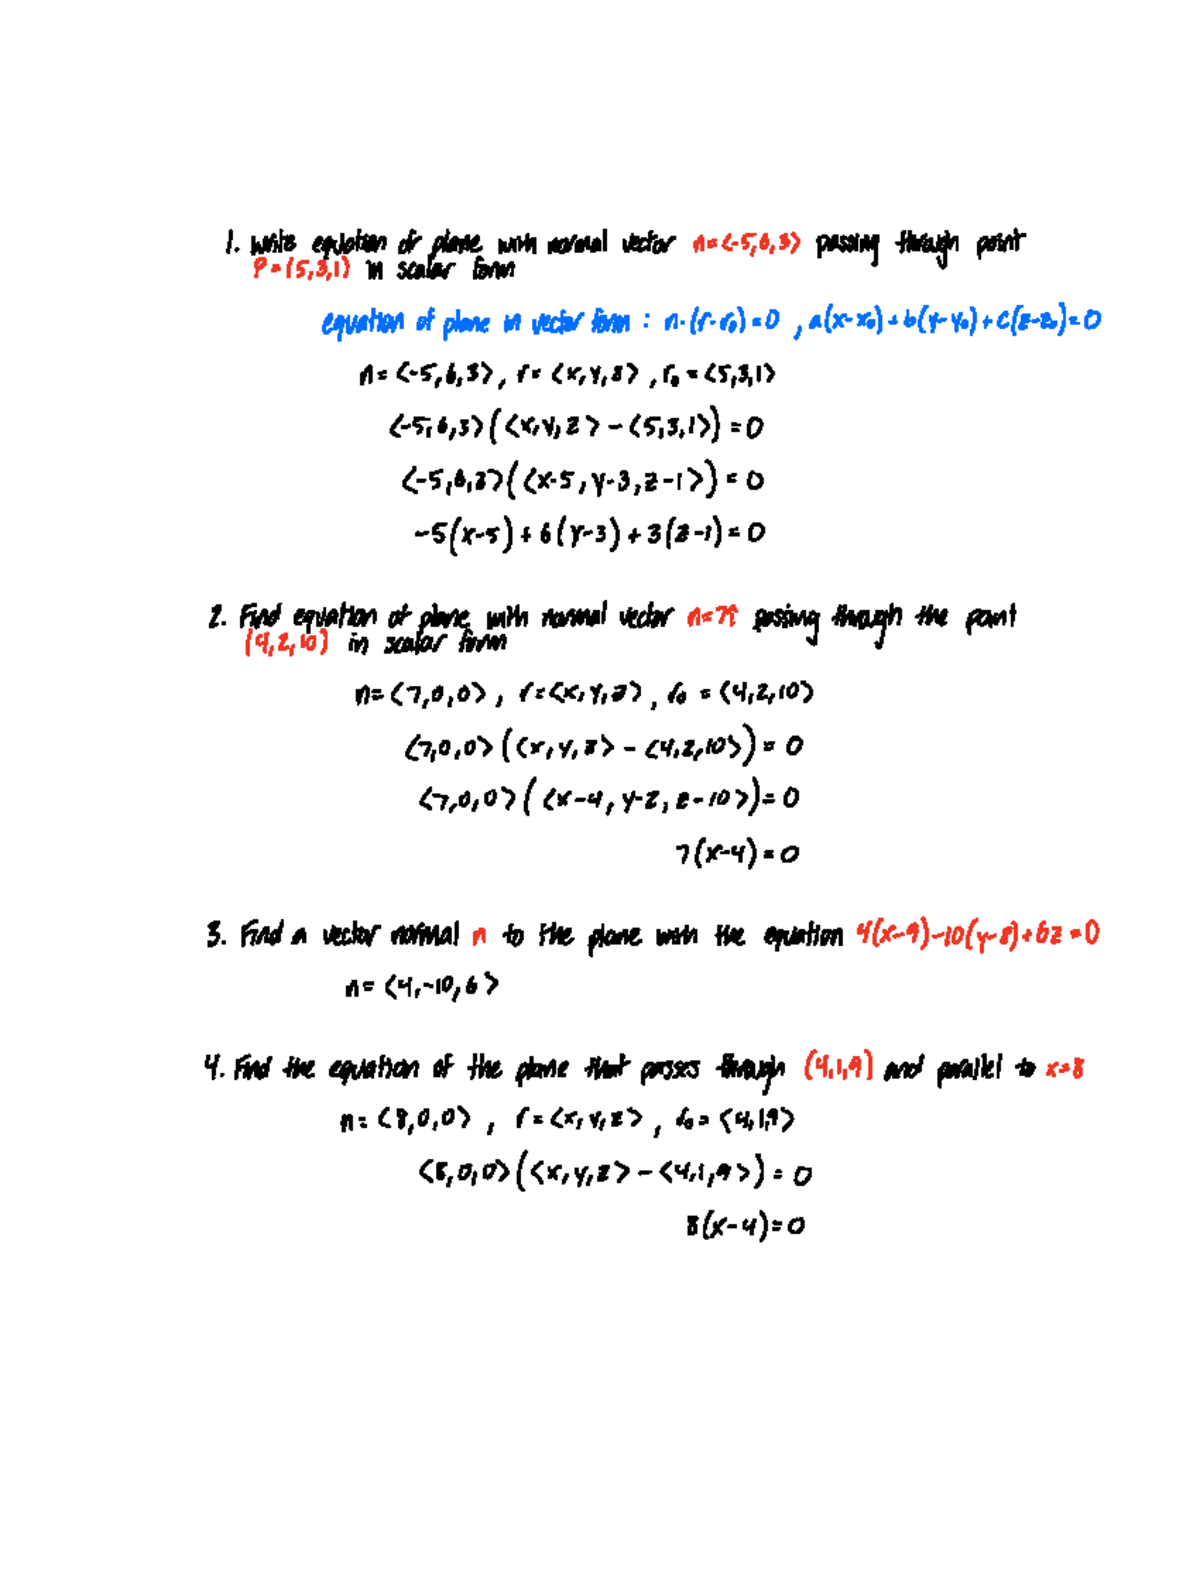 1. Write equation of plane with normal vector n=⟨-5,6,3⟩ passing through point
P=(5,3,1) in scalar form
equation of plane in vector form : n·(r-r₀)=0 , a(x-x₀)+b(y-y₀)+c(z-z₀)=0
n=⟨-5,6,3⟩, r=⟨x,y,z⟩, r₀=⟨5,3,1⟩
⟨-5,6,3⟩(⟨x,y,z⟩-⟨5,3,1⟩)=0
⟨-5,6,3⟩(⟨x-5,y-3,z-1⟩)=0
-5(x-5)+6(y-3)+3(z-1)=0
2. Find equation of plane with normal vector n=7î passing through the point
(4,2,10) in scalar form
n=⟨7,0,0⟩, r=⟨x,y,z⟩, r₀=⟨4,2,10⟩
⟨7,0,0⟩(⟨x,y,z⟩-⟨4,2,10⟩)=0
⟨7,0,0⟩(⟨x-4,y-2,z-10⟩)=0
7(x-4)=0
3. Find a vector normal n to the plane with the equation 4(x-9)-10(y-8)+6z=0
n=⟨4,-10,6⟩
4. Find the equation of the plane that passes through (4,1,9) and parallel to x=8
n=⟨8,0,0⟩, r=⟨x,y,z⟩, r₀=⟨4,1,9⟩
⟨8,0,0⟩(⟨x,y,z⟩-⟨4,1,9⟩)=0
8(x-4)=0